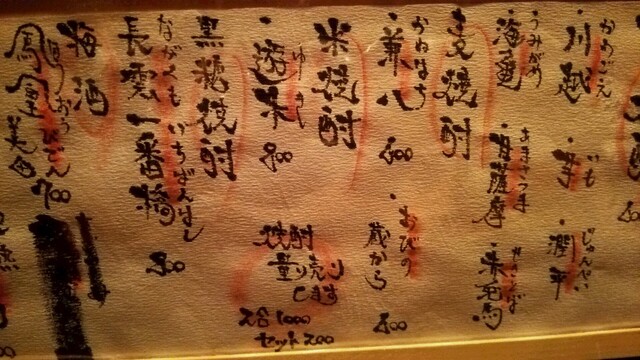 かわごえ
・川越
・芋 いも
・潤平 じゅんぺい
うみがめ
・海亀
あまさつま
・赤兎馬
麦焼酎
かねはち
・兼八 600
・おびの蔵から 500
米焼酎
ゆき
800
焼酎
量り売り
します
2合1000
セット200
黒糖焼酎
ながくも いちばんばし
長雲一番橋 800
梅酒
ほうおうびでん
鳳凰美田 700